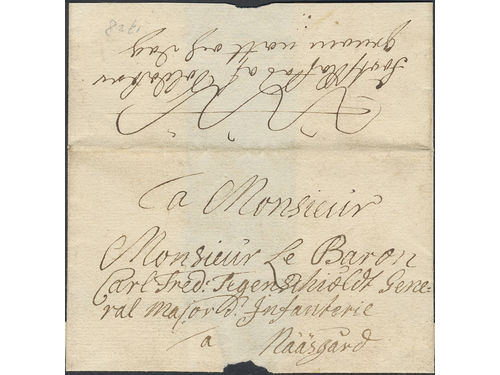 1728
gienom natt och dag
a Monsieur
Monsieur Le Baron
Carl Fred: Tegenschiöldt Gene-
ral Major d' Infanterie
a Nääsgård